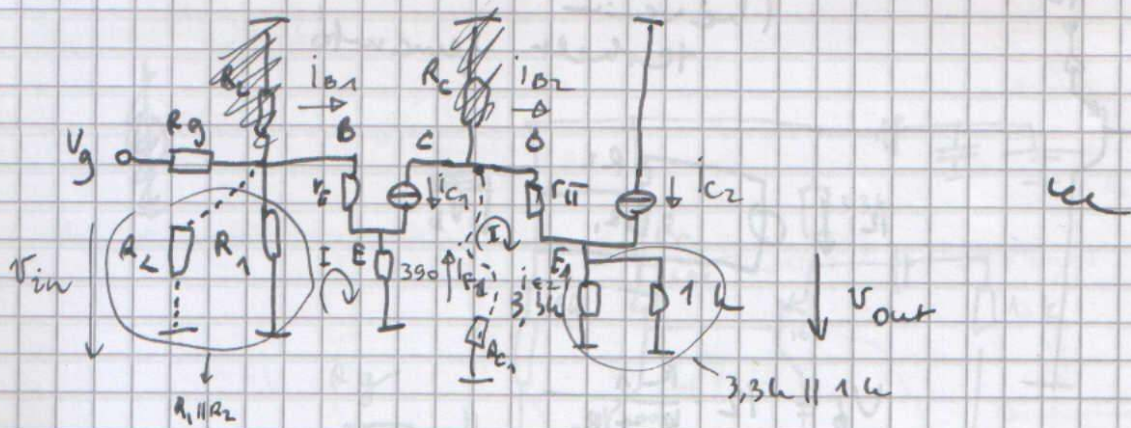 R_C i_B1 R_C i_B2
V_g Rg B C B
r_π i_C1 r_π i_C2
v_in R_2 R_1 I E 390 I E_1 3,3k 1k v_out
R_C1
R_1||R_2
3,3k || 1k